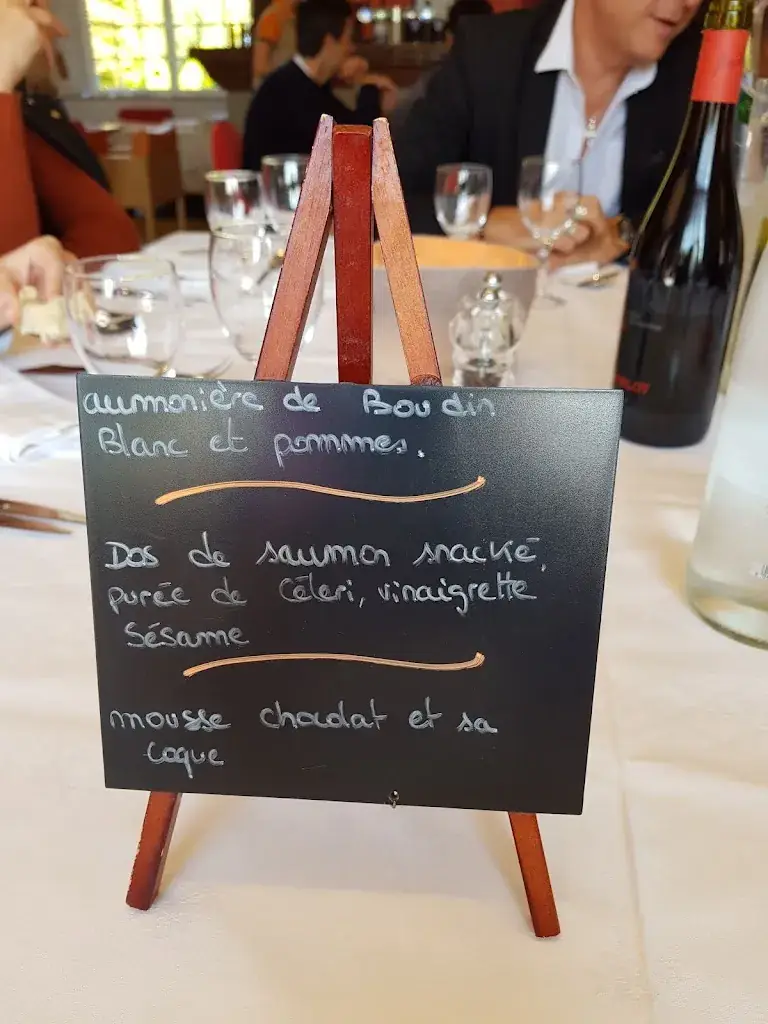 aumonière de Boudin
Blanc et pommes.
Dos de saumon snacké,
purée de Céleri, vinaigrette
Sésame
mousse chocolat et sa
coque